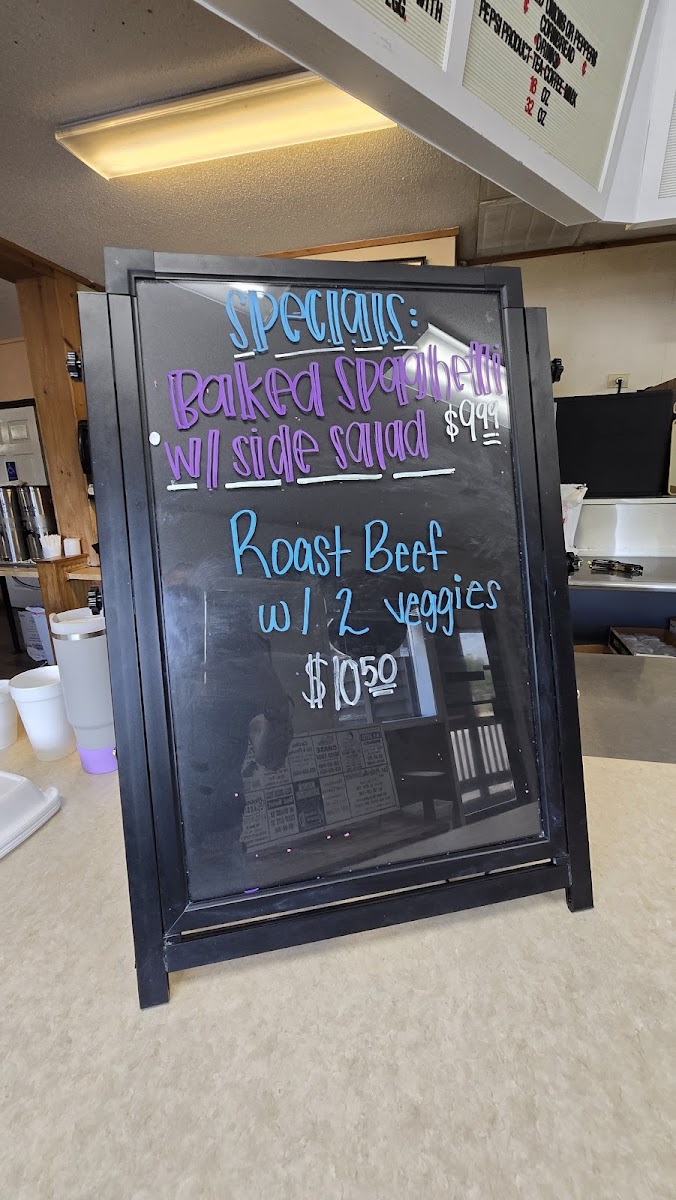 WITH
EGG.
ONIONS OR PEPPERS
CORNBREAD
PEPSI PRODUCT-TEA-COFFEE-MILK
18 OZ
32 OZ
Specials:
Baked Spaghetti
w/ side salad $9.99
Roast Beef
w/ 2 veggies
$10.50